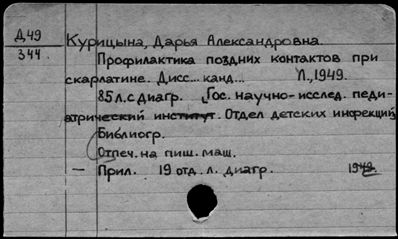 Д49
344
Курицына, Дарья Александровна.
Профилактика поздних контактов при
скарлатине. Дисс... канд... Л., 1949.
85 л. с диагр. Гос. научно-исслед. педи-
атрический институт. Отдел детских инфекций
Библиогр.
Отпеч. на пиш. маш.
— Прил. 19 отд. л. диагр. 1949.